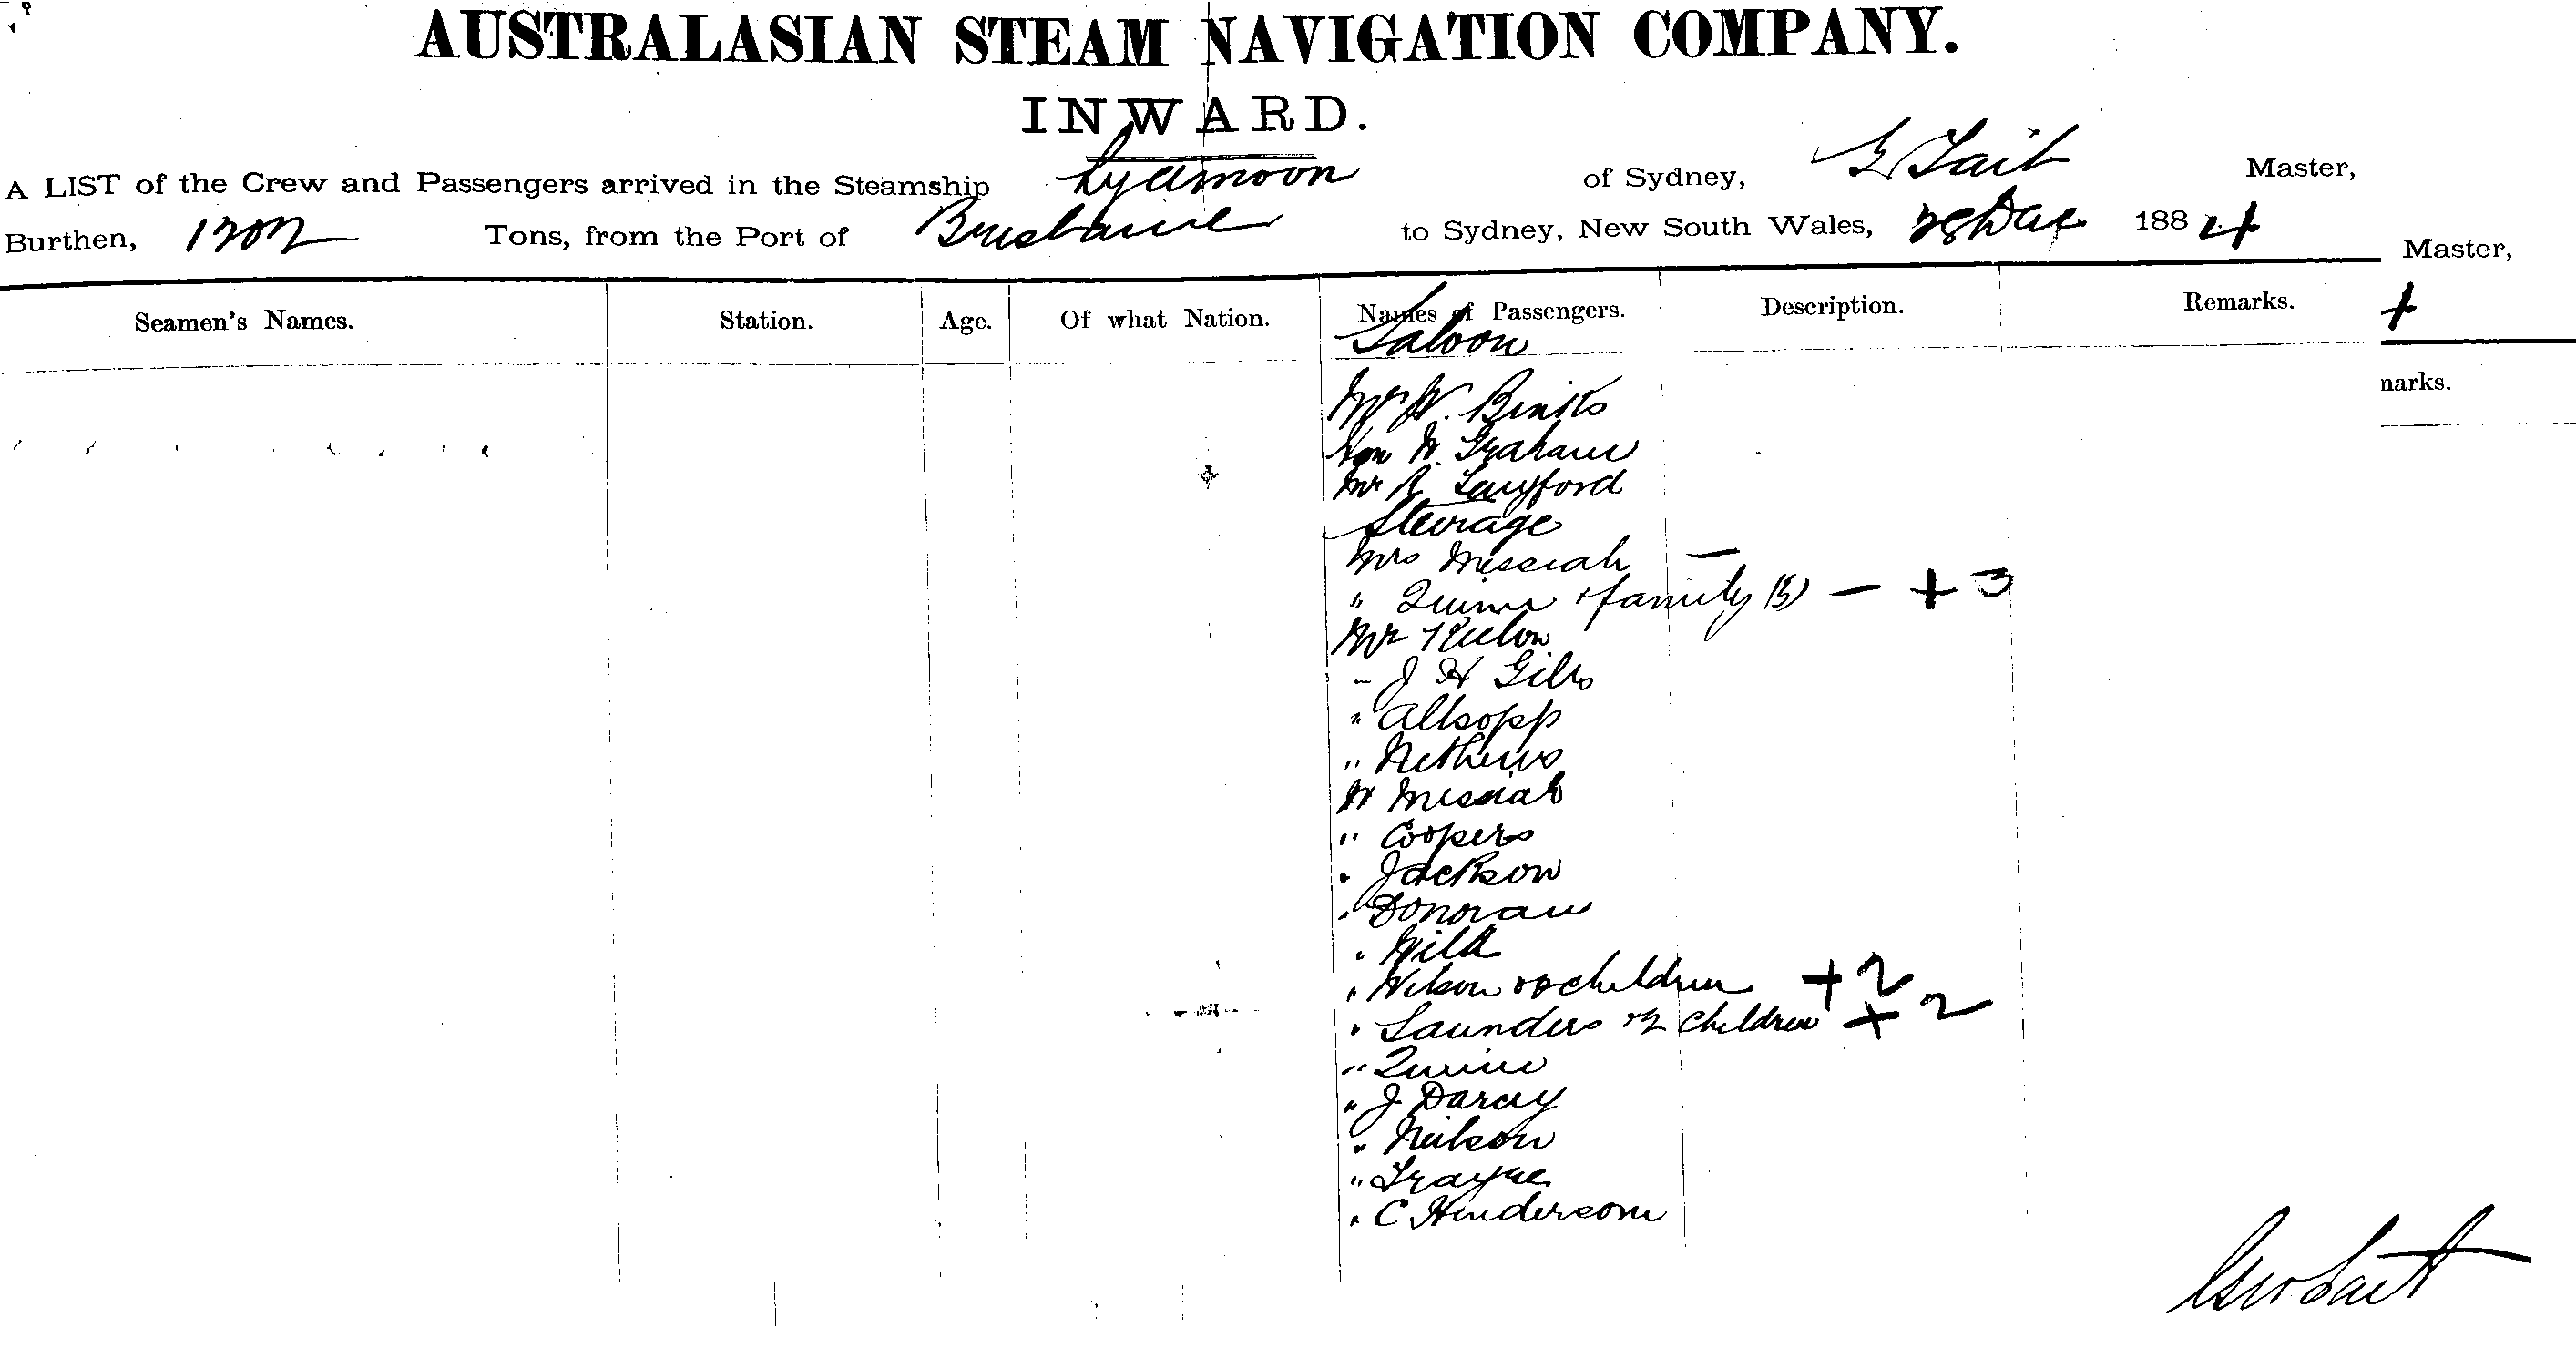 AUSTRALASIAN STEAM NAVIGATION COMPANY.
INWARD.
A LIST of the Crew and Passengers arrived in the Steamship Lyeemoon of Sydney, G Tait Master,
Burthen, 1202 Tons, from the Port of Brisbane to Sydney, New South Wales, 28 Dec 1884
Master,
Seamen's Names. Station. Age. Of what Nation. Names of Passengers. Description. Remarks.
4
Saloon
narks.
Mr W. Binks
Hon W. Graham
Mr A Langford
Steerage
Mrs Messiah —
" Quinn & family (3) — + 3
Mr
- J H Giles
" Allsopp
" Nethews
W Messiah
" Coopers
" Jackson
" Donovan
" Wild
" Wilson & 2 children + 2
" Saunders & 2 children + 2
" Quinn
" J Darcy
" Neilson
" Trayne
" C Henderson
Geo Tait